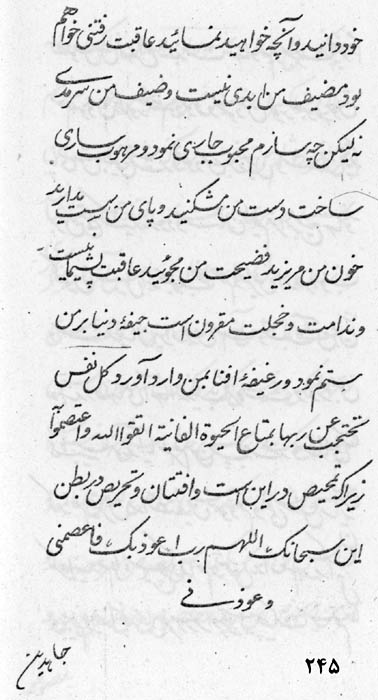 خود دانید و آنچه خواهید نمائید عاقبت رفتنی خواهم
بود مضیف من ابدی نیست و ضیف من سرمدی
نه لیکن چه سازم محبوب جابری نمود و مرهوب ساری
ساخت دست من مشکنید و پای من بست بدارید
خون من مریزید فضیحت من مجوئید عاقبت پشیمانیست
و ندامت و خجلت مقرون است جیفهٔ دنیا بر من
ستم نمود و رغیفهٔ افنا بمن وارد آورد و کل نفس
تحتجب عن ربها بمتاع الحیوة الفانیة اتقوا الله و اعتصموا
زیرا که تمحیص در این است و افتتان و تحریص در بطن
این سبحانک اللهم رب اعوذ بک فاعصمنی
و عوذنی
جاهدین
۲۴۵